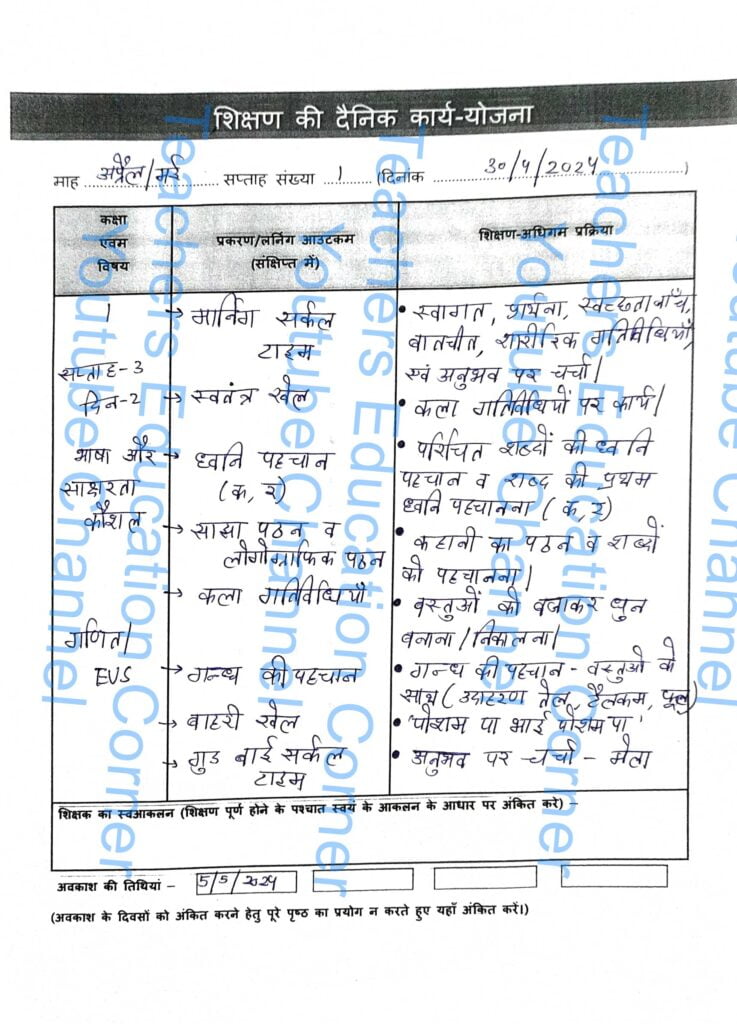 शिक्षण की दैनिक कार्य-योजना
माह अप्रैल/मई सप्ताह संख्या 1 (दिनांक 30/4/2024)
कक्षा
एवम
विषय
प्रकरण/लर्निंग आउटकम
(संक्षिप्त में)
शिक्षण-अधिगम प्रक्रिया
1
सप्ताह-3
दिन-2
भाषा और
साक्षरता
कौशल
गणित/
EVS
→ मार्निंग सर्कल
टाइम
→ स्वतंत्र खेल
→ ध्वनि पहचान
(क, र)
→ साझा पठन व
लोगोग्राफिक पठन
→ कला गतिविधियाँ
→ गन्ध की पहचान
→ बाहरी खेल
→ गुड बाई सर्कल
टाइम
• स्वागत, प्रार्थना, स्वच्छता जाँच,
बातचीत, शारीरिक गतिविधियाँ,
एवं अनुभव पर चर्चा।
• कला गतिविधियों पर कार्य।
• परिचित शब्दों की ध्वनि
पहचान व शब्द की प्रथम
ध्वनि पहचानना (क, र)
• कहानी का पठन व शब्दों
को पहचानना।
• वस्तुओं को बजाकर धुन
बनाना/निकालना।
• गन्ध की पहचान - वस्तुओ के
साथ (उदाहरण तेल, टैलकम, फूल)
• 'पोशम पा भाई पोशम पा'
• अनुभव पर चर्चा - मेला
शिक्षक का स्वआकलन (शिक्षण पूर्ण होने के पश्चात स्वयं के आकलन के आधार पर अंकित करे) –
अवकाश की तिथियां – 5/5/2024
(अवकाश के दिवसों को अंकित करने हेतु पूरे पृष्ठ का प्रयोग न करते हुए यहाँ अंकित करें।)
Teachers Education Corner
Youtube Channel
Teachers Education Corner
Youtube Channel
Teachers Education Corner
Youtube Channel